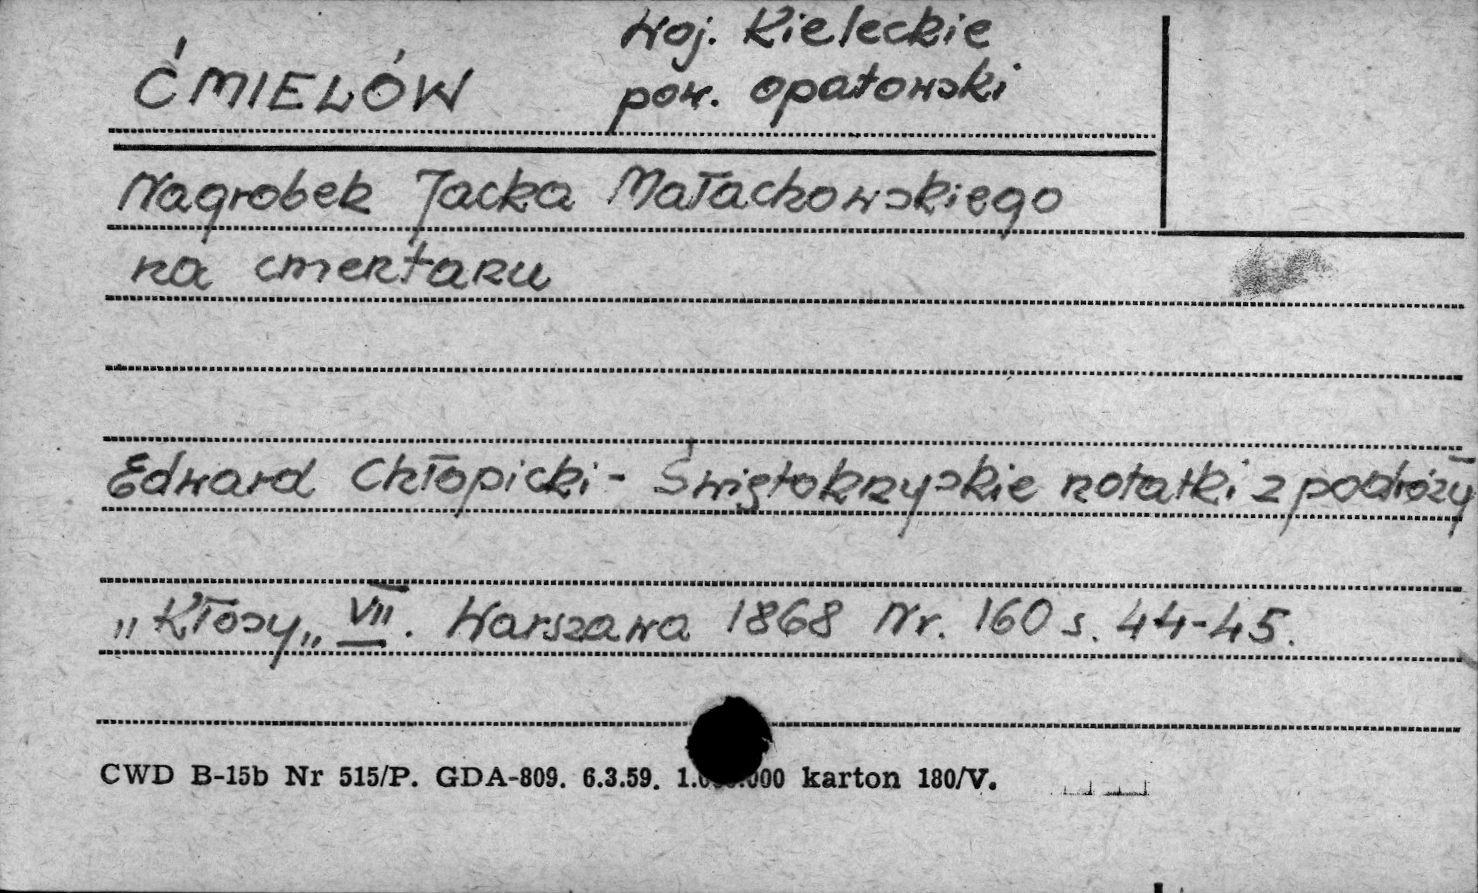 woj. Kieleckie
ĆMIELÓW pow. opatowski
Nagrobek Jacka Małachowskiego
na cmentarzu
Edward Chłopicki - Świętokrzyskie notatki z podróży
„Kłosy„ VII. Warszawa 1868 Nr. 160 s. 44-45.
CWD B-15b Nr 515/P. GDA-809. 6.3.59. karton 180/V.